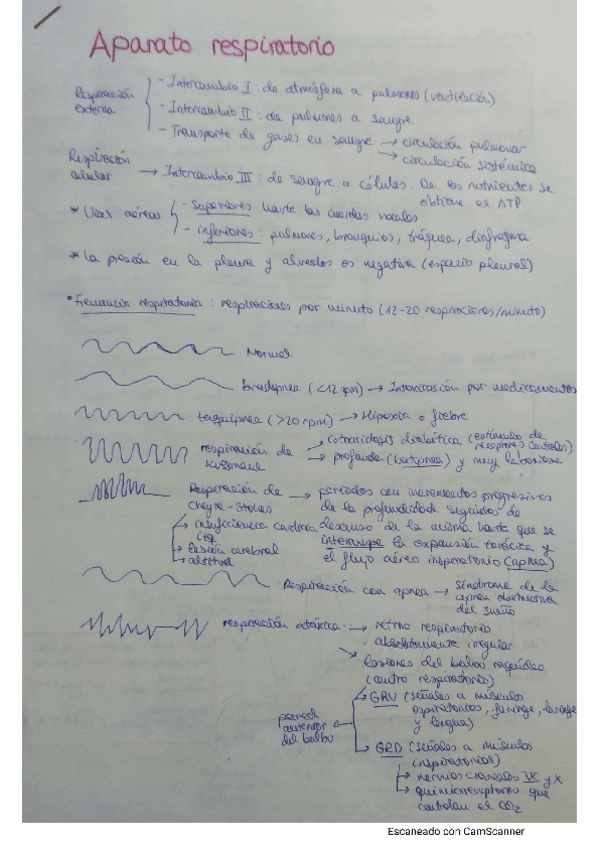 Aparato respiratorio
Respiración externa
- Intercambio I: de atmósfera a pulmones (ventilación)
- Intercambio II: de pulmones a sangre
- Transporte de gases en sangre → circulación pulmonar
→ circulación sistémica
Respiración celular → Intercambio III: de sangre a células. De los nutrientes se
obtiene el ATP
* Vías aéreas
- Superiores hasta las cuerdas vocales
- inferiores: pulmones, bronquios, tráquea, diafragma
* La presión en la pleura y alveolos es negativa (espacio pleural)
• Frecuencia respiratoria: respiraciones por minuto (12-20 respiraciones/minuto)
Normal
bradipnea (<12 rpm) → Intoxicación por medicamentos
taquipnea (>20 rpm) → Hipoxia o fiebre
respiración de Kussmaul
→ cetoacidosis diabética (estímulo de
receptores centrales)
→ profunda (batipnea) y muy laboriosa
Respiración de Cheyne-Stokes
→ periodos con incrementos progresivos
de la profundidad seguidos de
descenso de la misma hasta que se
interrumpe la expansión torácica y
el flujo aéreo inspiratorio (apnea)
→ insuficiencia cardiaca
→ lesión cerebral
→ altitud
Respiración con apnea → síndrome de la
apnea obstructiva
del sueño
respiración atáxica → ritmo respiratorio
absolutamente irregular
→ lesiones del bulbo raquídeo
(centro respiratorio)
pared
anterior
del bulbo
→ GRV (señales a músculos
espiratorios, faringe, laringe
y lengua)
→ GRD (señales a músculos
inspiratorios)
→ nervios craneales IX y X
→ quimiorreceptores que
controlan el CO2
Escaneado con CamScanner